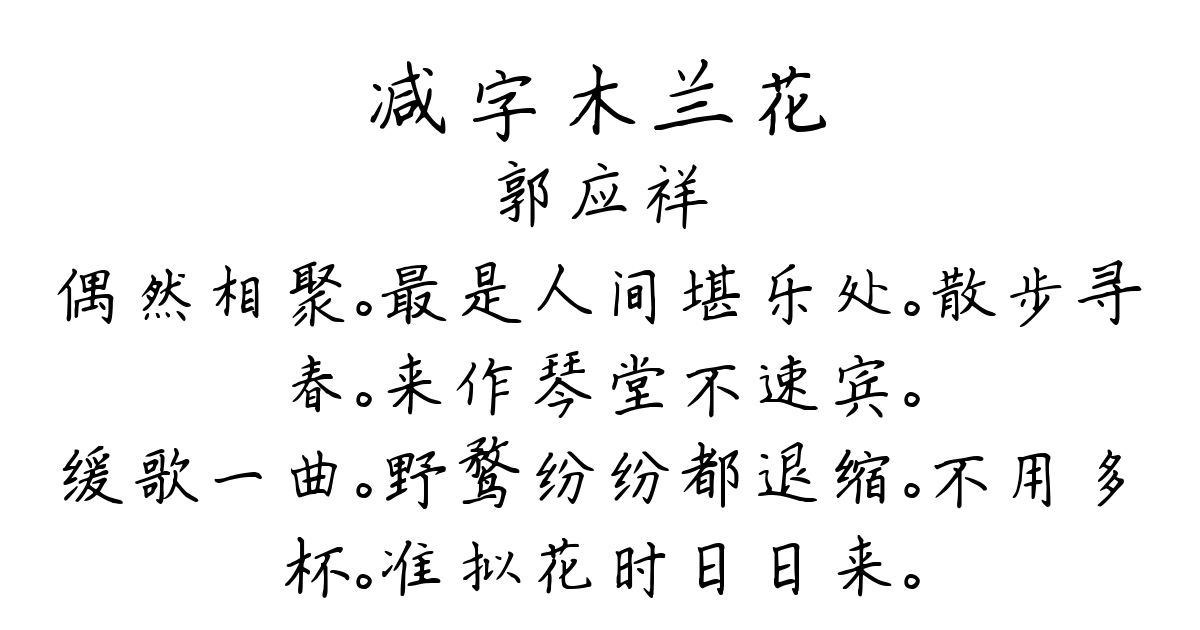 减字木兰花
郭应祥
偶然相聚。最是人间堪乐处。散步寻
春。来作琴堂不速宾。
缓歌一曲。野鹜纷纷都退缩。不用多
杯。准拟花时日日来。